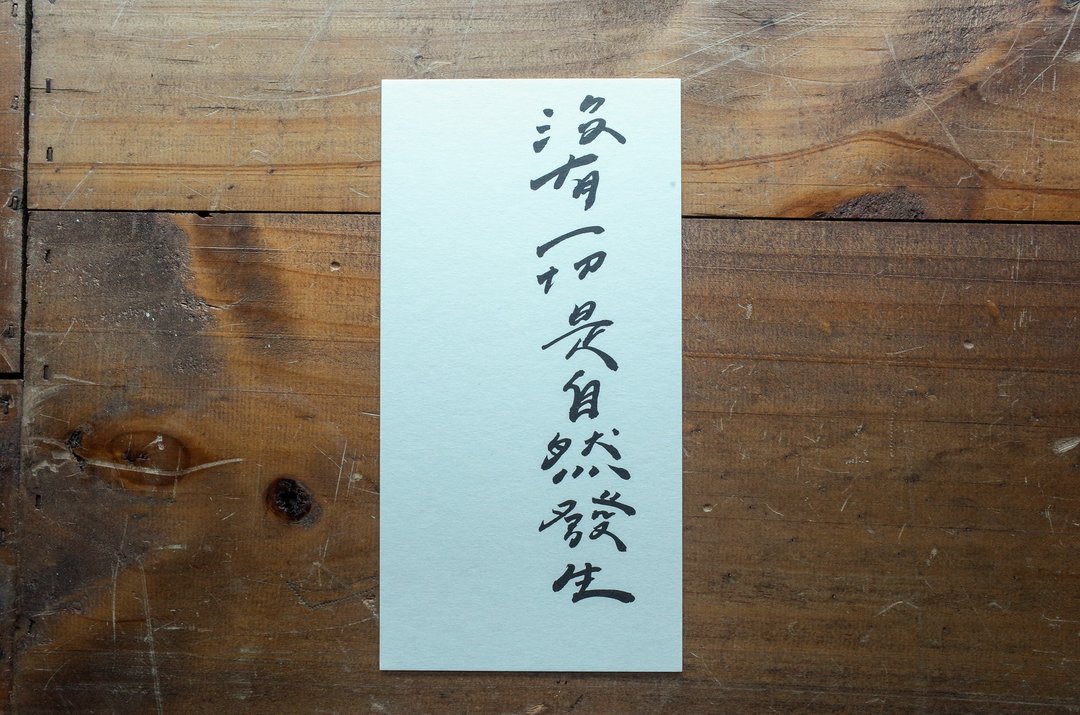 沒有一切是自然發生